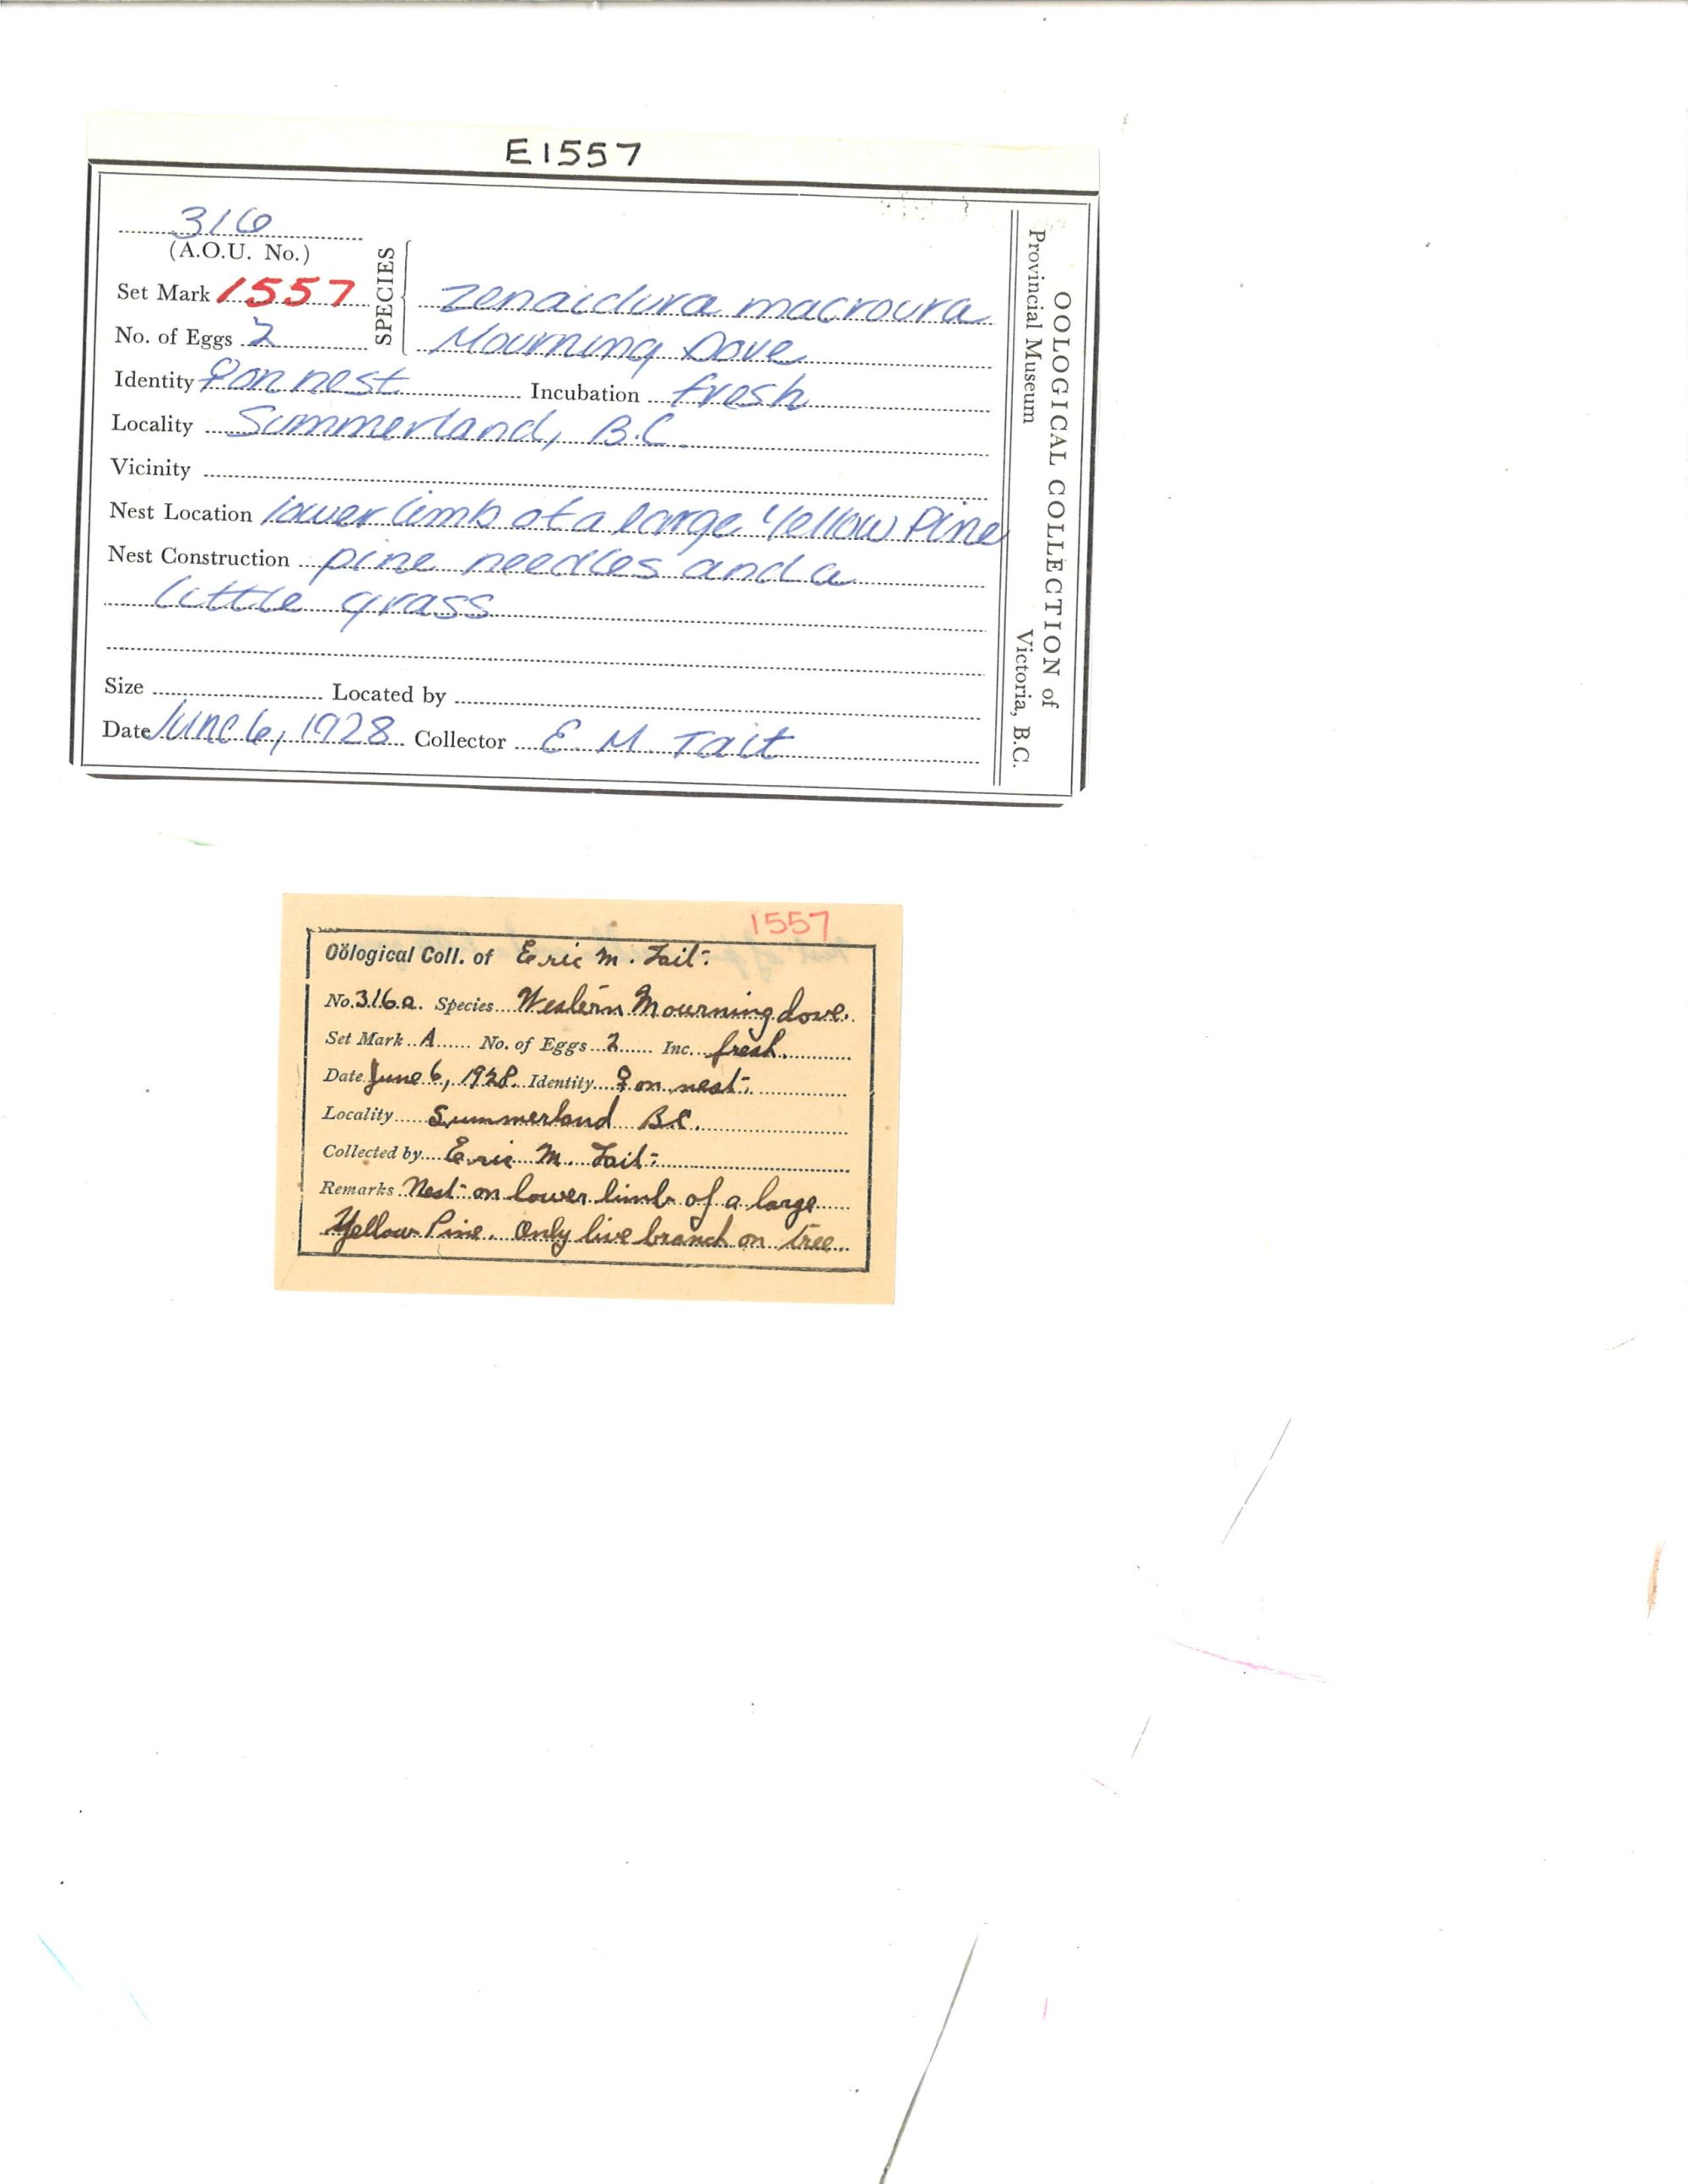 E1557
316
(A.O.U. No.)
Set Mark 1557
No. of Eggs 2
SPECIES
Zenaidura macroura
Mourning Dove
Identity ♀ on nest Incubation fresh
Locality Summerland, B.C.
Vicinity
Nest Location lower limb of a large Yellow Pine
Nest Construction pine needles and a
little grass
Size Located by
Date June 6, 1928 Collector E. M. Tait
OOLOGICAL COLLECTION of
Provincial Museum Victoria, B.C.
1557
Oölogical Coll. of Eric M. Tait.
No. 316.a. Species Western Mourning dove.
Set Mark A No. of Eggs 2 Inc. fresh.
Date June 6, 1928. Identity ♀ on nest.
Locality Summerland B.C.
Collected by Eric M. Tait.
Remarks Nest on lower limb of a large
Yellow Pine. Only live branch on tree.